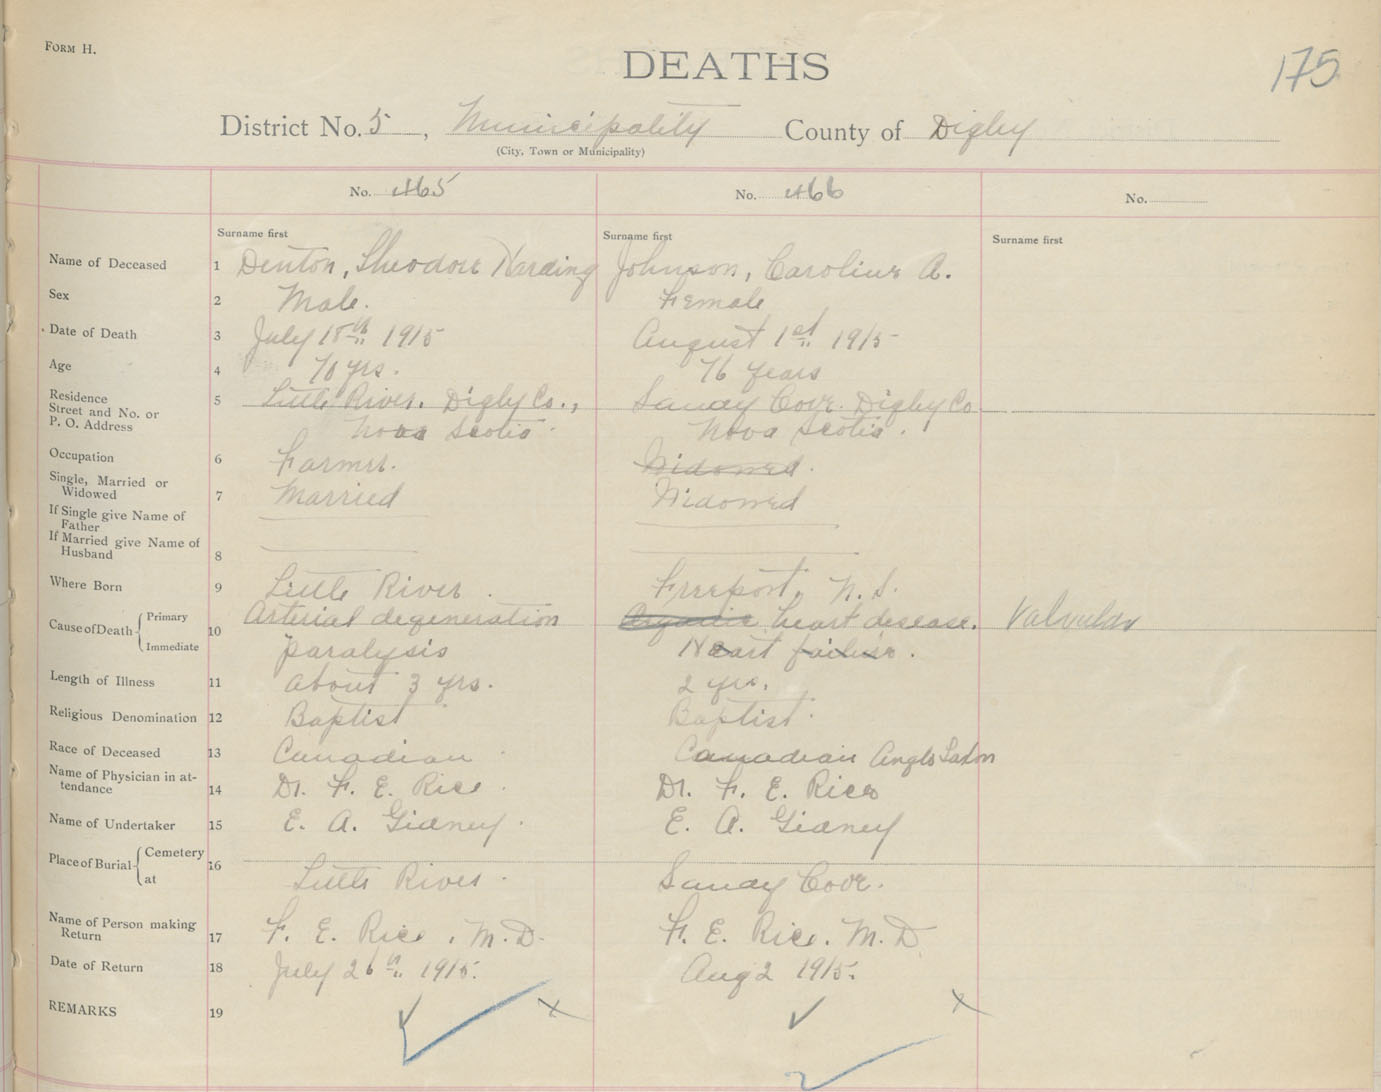 FORM H.
175
DEATHS
District No. 5, Municipality County of Digby
(City, Town or Municipality)
No. 465 No. 466 No.
Surname first Surname first Surname first
Name of Deceased 1 Denton, Theodore Harding Johnson, Caroline A.
Sex 2 Male. Female
Date of Death 3 July 18th 1915 August 1st 1915
Age 4 70 yrs. 76 years
Residence Street and No. or P. O. Address 5 Little River. Digby Co., Sandy Cove. Digby Co
Nova Scotia. Nova Scotia.
Occupation 6 Farmer. Widowed.
Single, Married or Widowed 7 Married Widowed
If Single give Name of Father
If Married give Name of Husband 8
Where Born 9 Little River. Freeport, N.S.
Cause of Death Primary 10 Arterial degeneration Organic heart disease. Valvular
Immediate paralysis Heart failure.
Length of Illness 11 about 3 yrs. 2 yrs.
Religious Denomination 12 Baptist Baptist.
Race of Deceased 13 Canadian Canadian Anglo Saxon
Name of Physician in attendance 14 Dr. F. E. Rice. Dr. F. E. Rice
Name of Undertaker 15 E. A. Gidney. E. A. Gidney
Place of Burial Cemetery 16
at Little River. Sandy Cove.
Name of Person making Return 17 F. E. Rice, M.D. F. E. Rice. M.D
Date of Return 18 July 26th 1915. Aug 2 1915.
REMARKS 19